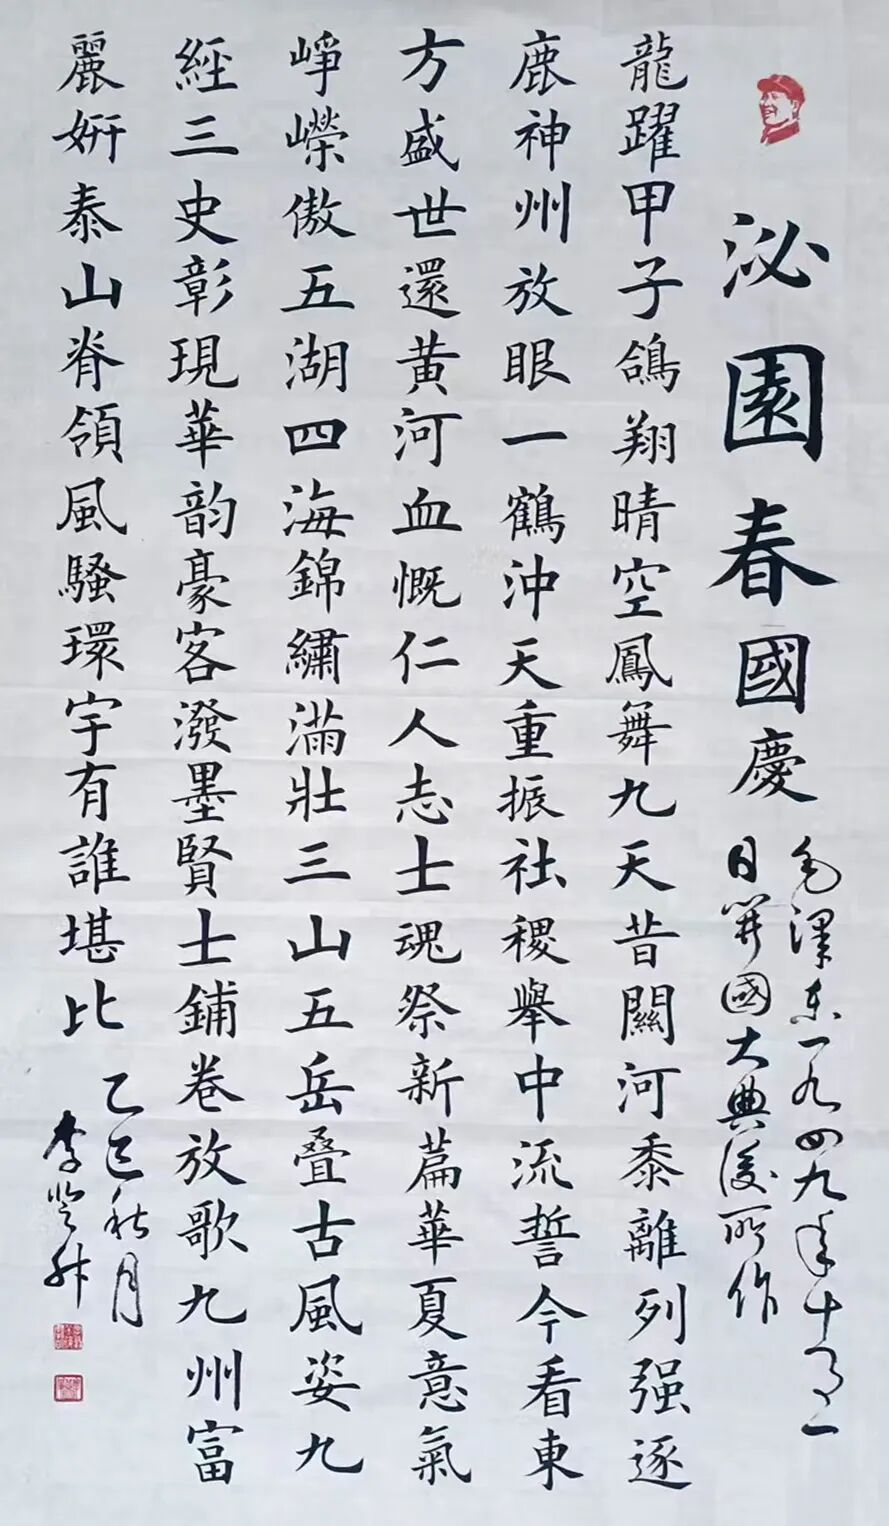 泌園春國慶
毛澤东一九四九年十月一
日開國大典後所作
龍躍甲子鴿翔晴空鳳舞九天昔關河黍離列强逐
鹿神州放眼一鶴沖天重振社稷舉中流誓今看東
方盛世還黄河血慨仁人志士魂祭新篇華夏意氣
崢嶸傲五湖四海錦繡滿壯三山五岳叠古風姿九
經三史彰現華韵豪客潑墨賢士鋪卷放歌九州富
麗妍泰山脊領風騷環宇有誰堪比
乙巳秋月
李登升